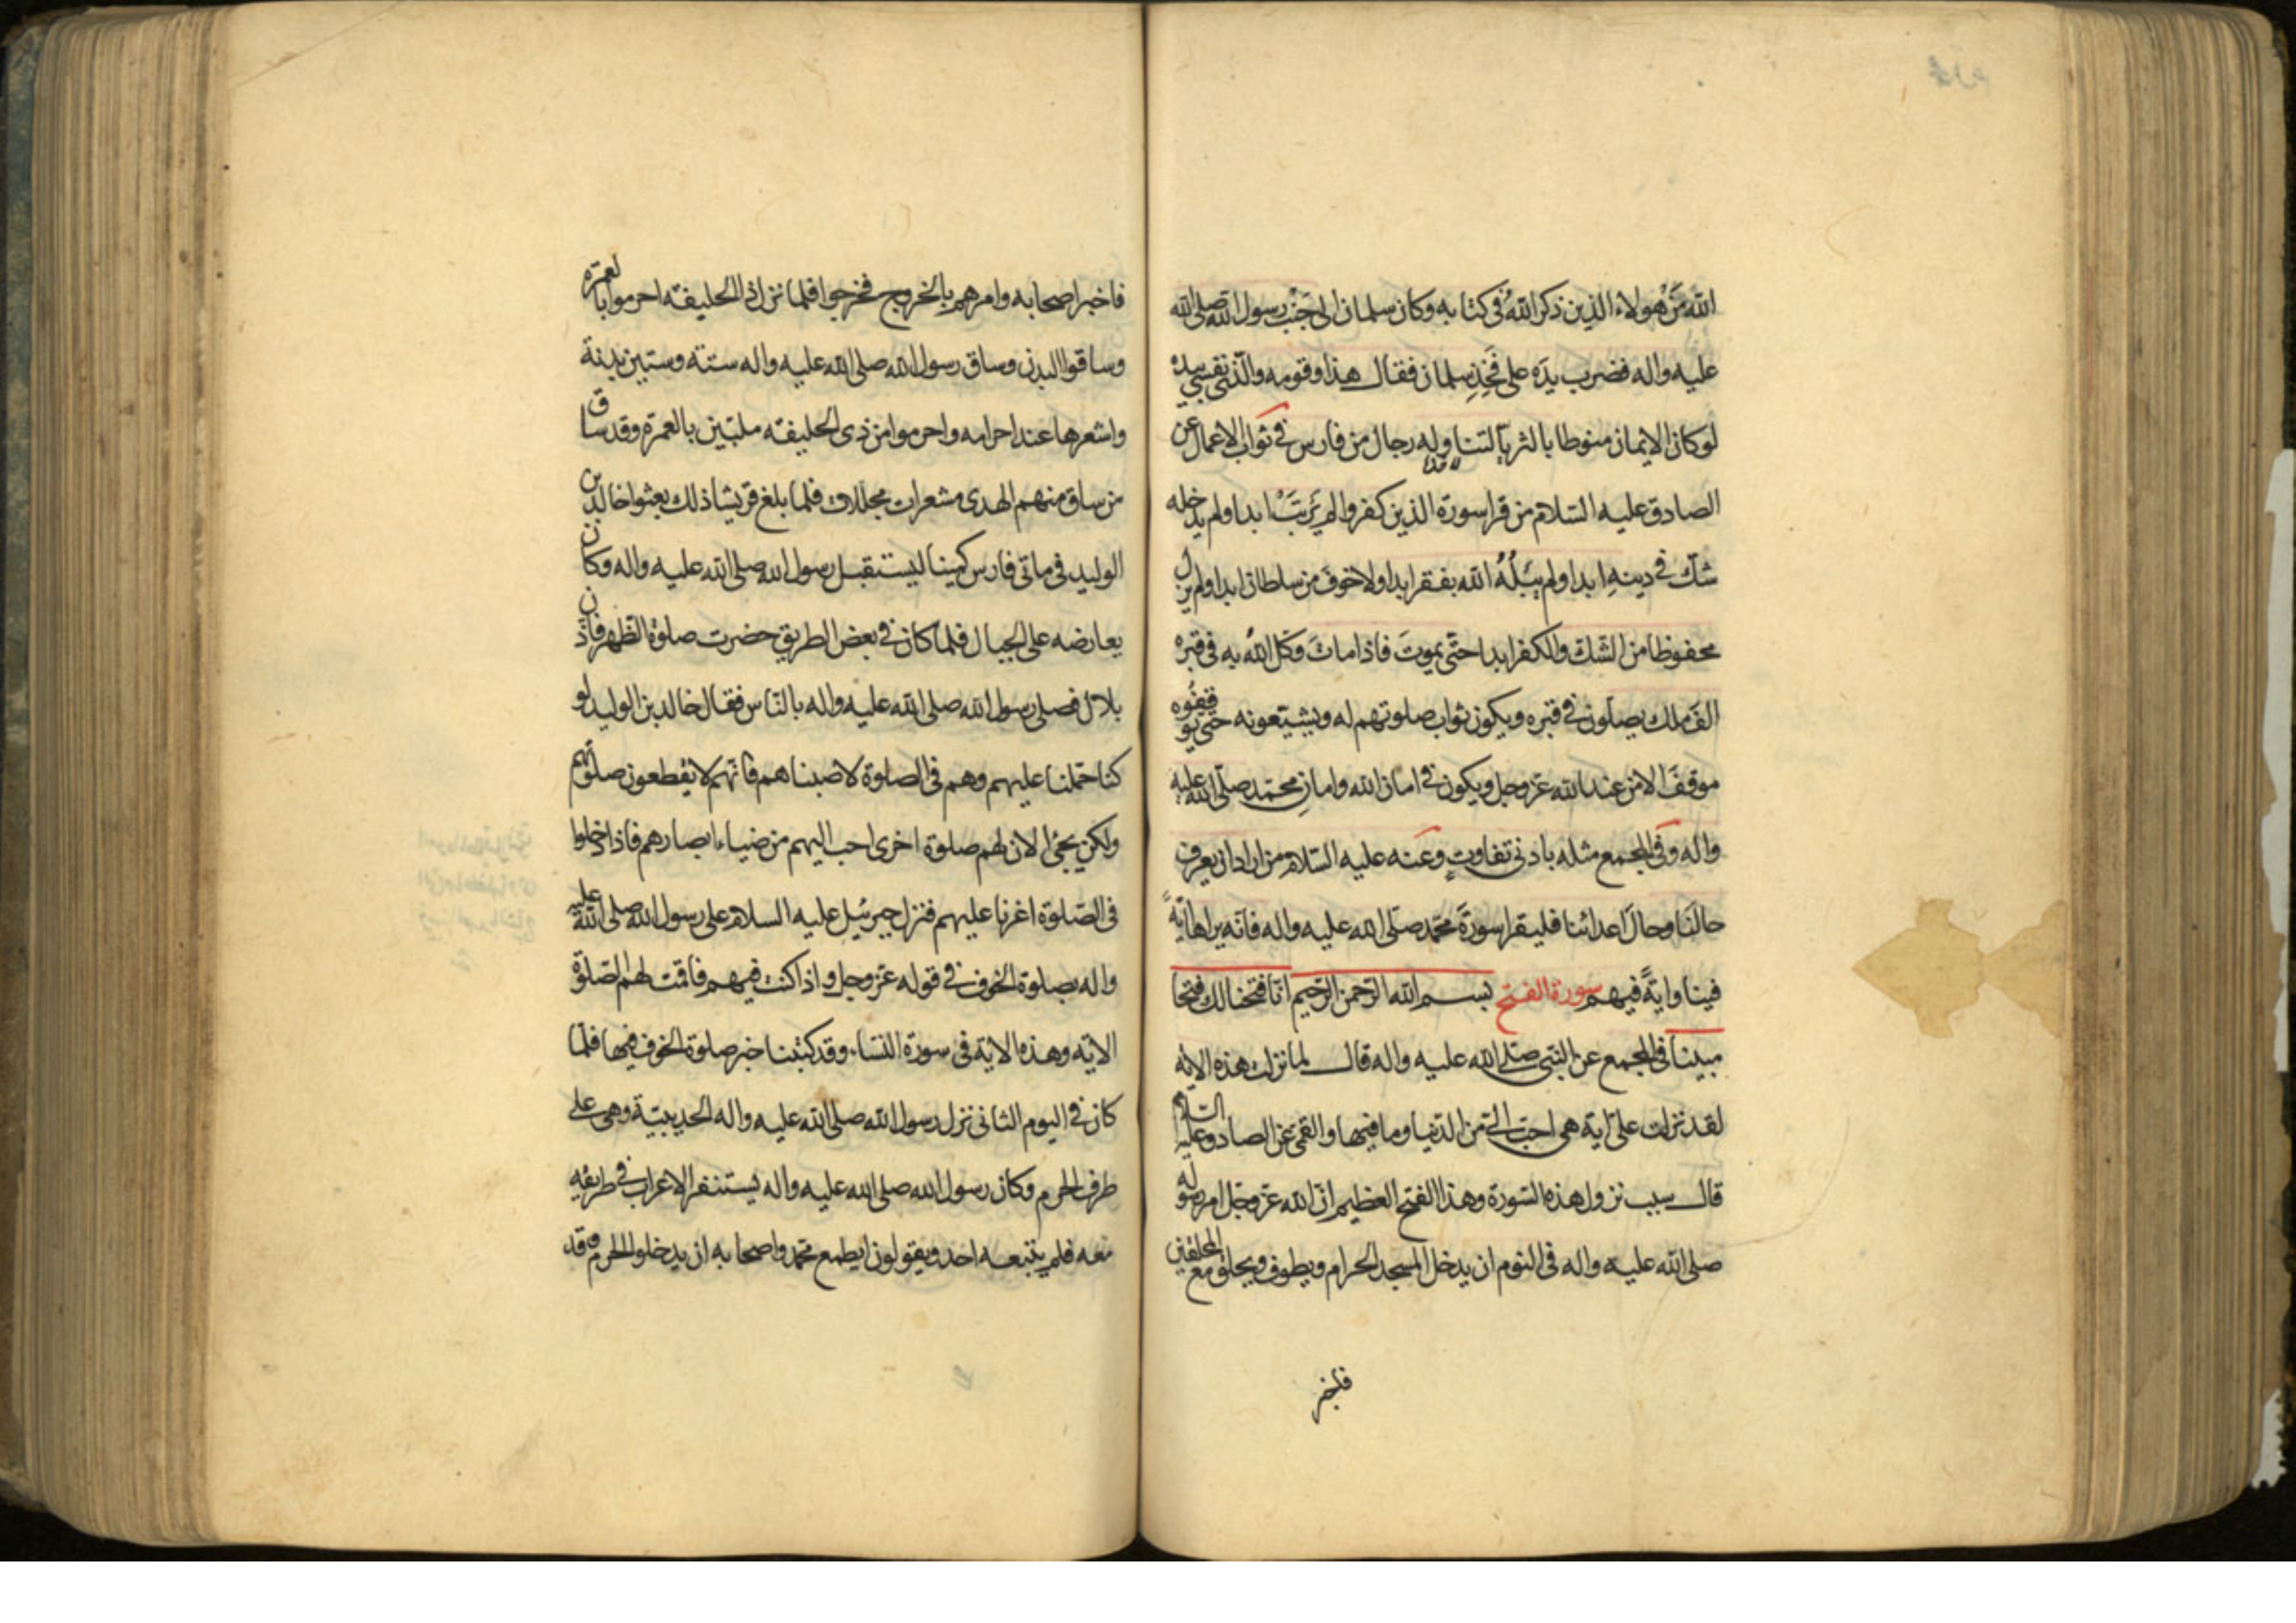 الله مَن هولاء الذين ذكر اللهُ فى كتابه وكان سلمان الى جَنْب رسول الله صلى الله
عليه واله فضرب يدَه على فَخِذِ سلمان فقال هذا وقومه والّذى نفسى بيده
لو كان الايمان منوطا بالثريّا لتناوله رجال من فارس فى ثواب الاعمال عن
الصادق عليه السّلام من قرا سورة الذين كفروا لم يَرتَبْ ابدا ولم يدخله
شكّ فى دينهِ ابدا ولم يَبْتَلُهُ الله بفقر ابدا ولا خوفَ من سلطان ابدا ولم يزل
محفوظا من الشك والكفر ابدا حتّى يموتَ فاذا ماتَ وَكّل اللهُ به فى قبره
الفَ ملك يصلّون فى قبره ويكون ثواب صلوتهم له ويشيّعونه حتى يوقفُوه
موقفَ الامن عند الله عزّ وجل ويكون فى امان الله وامانِ محمّد صلّى الله عليه
واله وَفى المجمع مثله بادنى تفاوتٍ وعَنه عليه السّلام من اراد ان يعرف
حالَنا وحالَ اعدائنا فليقرا سورةَ محمّد صلّى الله عليه واله فانّه يراها ايةً
فينا وايةً فيهم سورة الفتح بسم الله الرّحمن الرّحيم انّا فتحنا لك فتحا
مبينا فى المجمع عن النّبى صلى الله عليه واله قال لما نزلت هذه الايه
لقد نزلت علىّ اية هى احبّ الىّ من الدّنيا وما فيها والقمى عن الصادق عليه السّلام
قال سبب نزول هذه السّورة وهذا الفتح العظيم انّ الله عزّ وجّل امر رسوله
صلى الله عليه واله فى النوم ان يدخل المسجد الحرام ويطوف ويحلق مع المحلقين
فاخبر
فاخبر اصحابه وامرهم بالخروج فخرجوا فلما نزل ذا الحليفه احرموا بالعمرة
وساقوا البدن وساق رسول الله صلى الله عليه واله ستة وستين بدنة
واشعرها عند احرامه واحرموا من ذى الحليفه ملبّين بالعمرة وقد ساق
من ساق منهم الهدى مشعرات مجللات فلما بلغ قريشا ذلك بعثوا خالد بن
الوليد فى ماتى فارس كمينا ليستقبل رسول الله صلى الله عليه واله وكان
يعارضه على الجبال فلما كان فى بعض الطريق حضرت صلوة الظهر فاذّن
بلال فصلى رسول الله صلى الله عليه واله بالنّاس فقال خالد بن الوليد لو
كنا حملنا عليهم وهم فى الصلوة لاصبناهم فانّهم لا يقطعون صلوتهم
ولكن يجئ الان لهم صلوة اخرى احب اليهم من ضياء ابصارهم فاذا دخلوا
فى الصّلوة اغرنا عليهم فنزل جبرئيل عليه السلام على رسول الله صلى الله عليه
واله بصلوة الخوف فى قوله عزّ وجل واذا كنت فيهم فاقمت لهم الصّلوة
الايه وهذه الاية فى سورة النّسا وقد كتبنا خبر صلوة الخوف فيها فلمّا
كان فى اليوم الثانى نزل رسول الله صلى الله عليه واله الحديبيّة وهى على
طرف الحرم وكان رسول الله صلى الله عليه واله يستنفر الاعراب فى طريقه
معه فلم يتبعه احد ويقولون ايطمع محمد واصحابه ان يدخلوا الحرم وقد